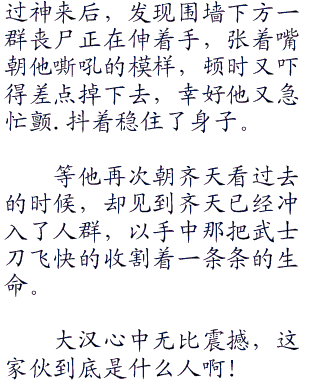 过神来后，发现围墙下方一
群丧尸正在伸着手，张着嘴
朝他嘶吼的模样，顿时又吓
得差点掉下去，幸好他又急
忙颤.抖着稳住了身子。
等他再次朝齐天看过去
的时候，却见到齐天已经冲
入了人群，以手中那把武士
刀飞快的收割着一条条的生
命。
大汉心中无比震撼，这
家伙到底是什么人啊！